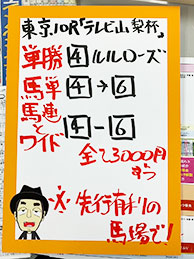 東京10R「テレビ山梨杯」
単勝 4 ルルローズ
馬単 4→6
馬連とワイド 4-6
全て3000円
ずつ
※先行有利の
馬場で!